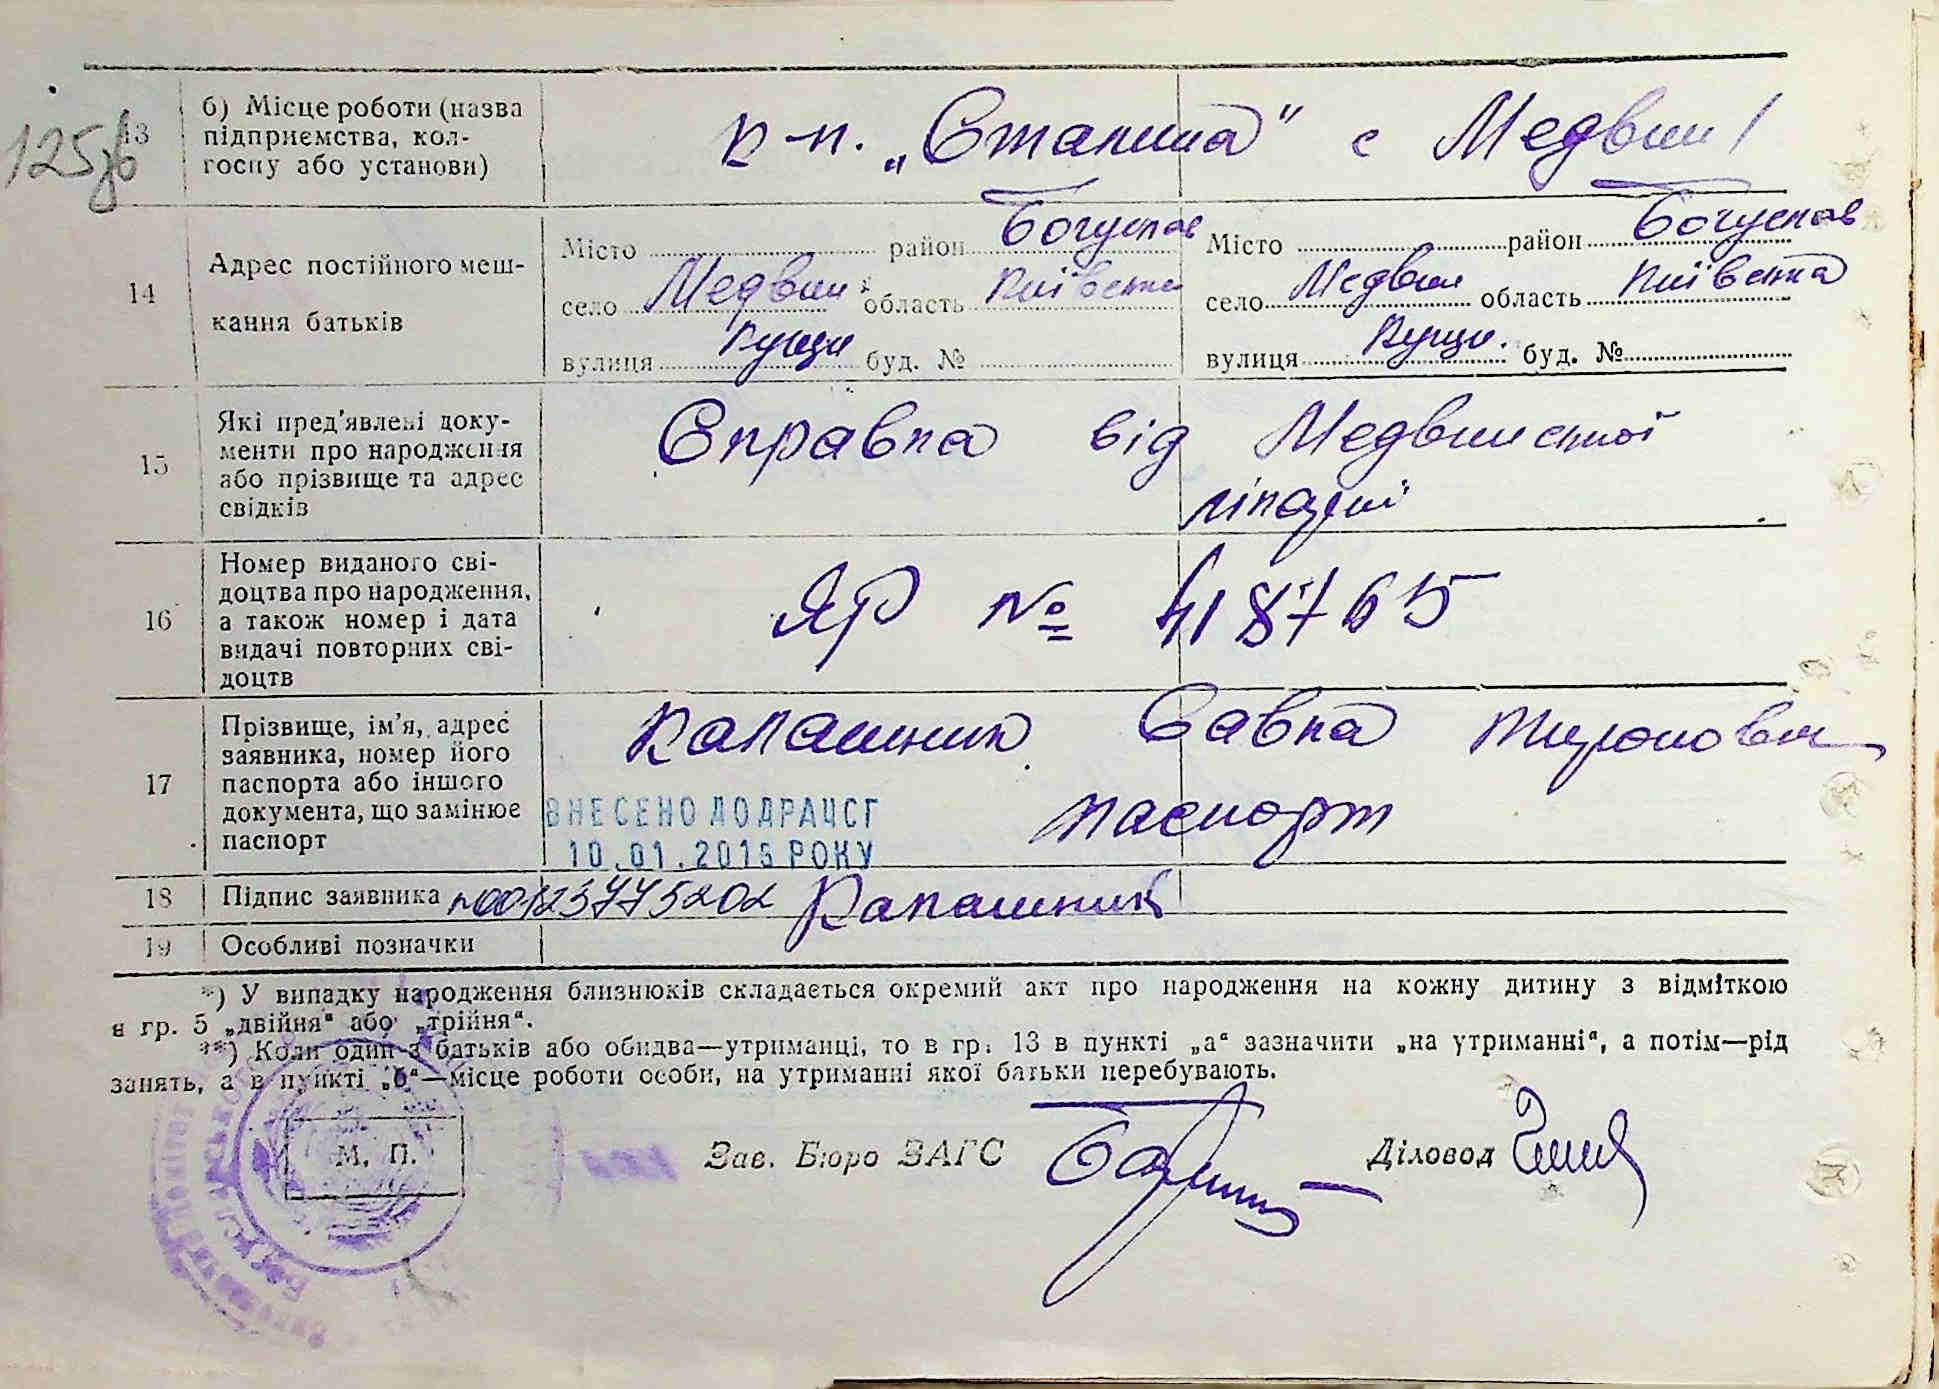 125зв
13 б) Місце роботи (назва
підприємства, кол-
госпу або установи)
к-п. „Сталина" с Медвин
14 Адрес постійного меш-
кання батьків
Місто район Богуслав Місто район Богуслав
село Медвин область Київська село Медвин область Київська
вулиця Кущи буд. № вулиця Кущи. буд. №
15 Які пред'явлені доку-
менти про народження
або прізвище та адрес
свідків
Справка від Медвинської
лікарні
16 Номер виданого сві-
доцтва про народження,
а також номер і дата
видачі повторних сві-
доцтв
ЯР № 418765
17 Прізвище, ім'я, адрес
заявника, номер його
паспорта або іншого
документа, що замінює
паспорт
Калашник Савка
паспорт
ВНЕСЕНО ДО ДРАЦСГ
10.01.2015 РОКУ
18 Підпис заявника 00123775202 Калашник
19 Особливі позначки
*) У випадку народження близнюків складається окремий акт про народження на кожну дитину з відміткою
в гр. 5 „двійня" або „трійня".
**) Коли один з батьків або обидва—утриманці, то в гр. 13 в пункті „а" зазначити „на утриманні", а потім—рід
занять, а в пункті „б"—місце роботи особи, на утриманні якої батьки перебувають.
М. П.
Зав. Бюро ЗАГС Діловод